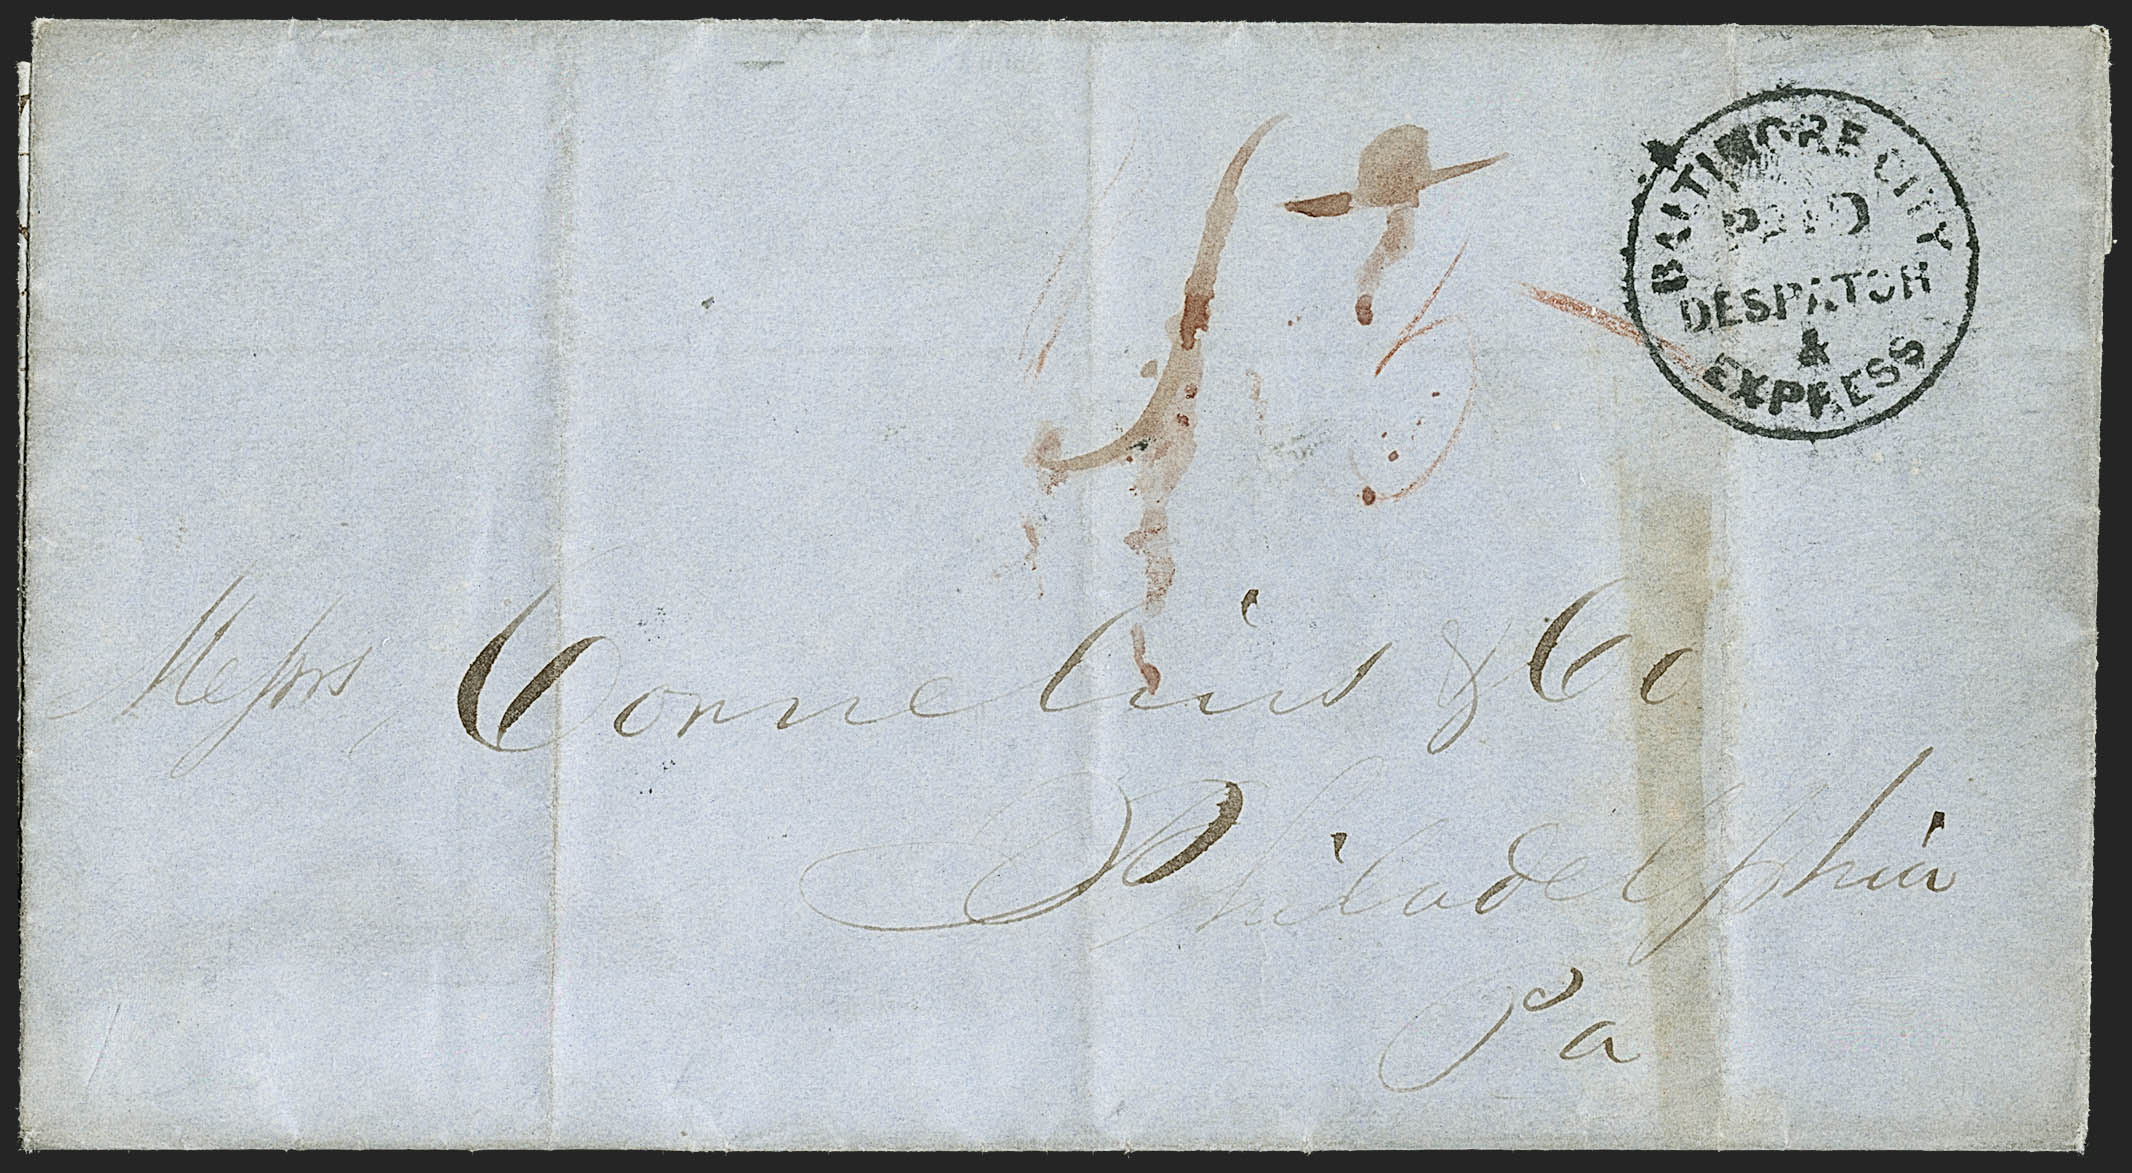 BALTIMORE CITY
PAID
DESPATCH
&
EXPRESS
Messrs Cornelius & Co
Philadelphia
Pa